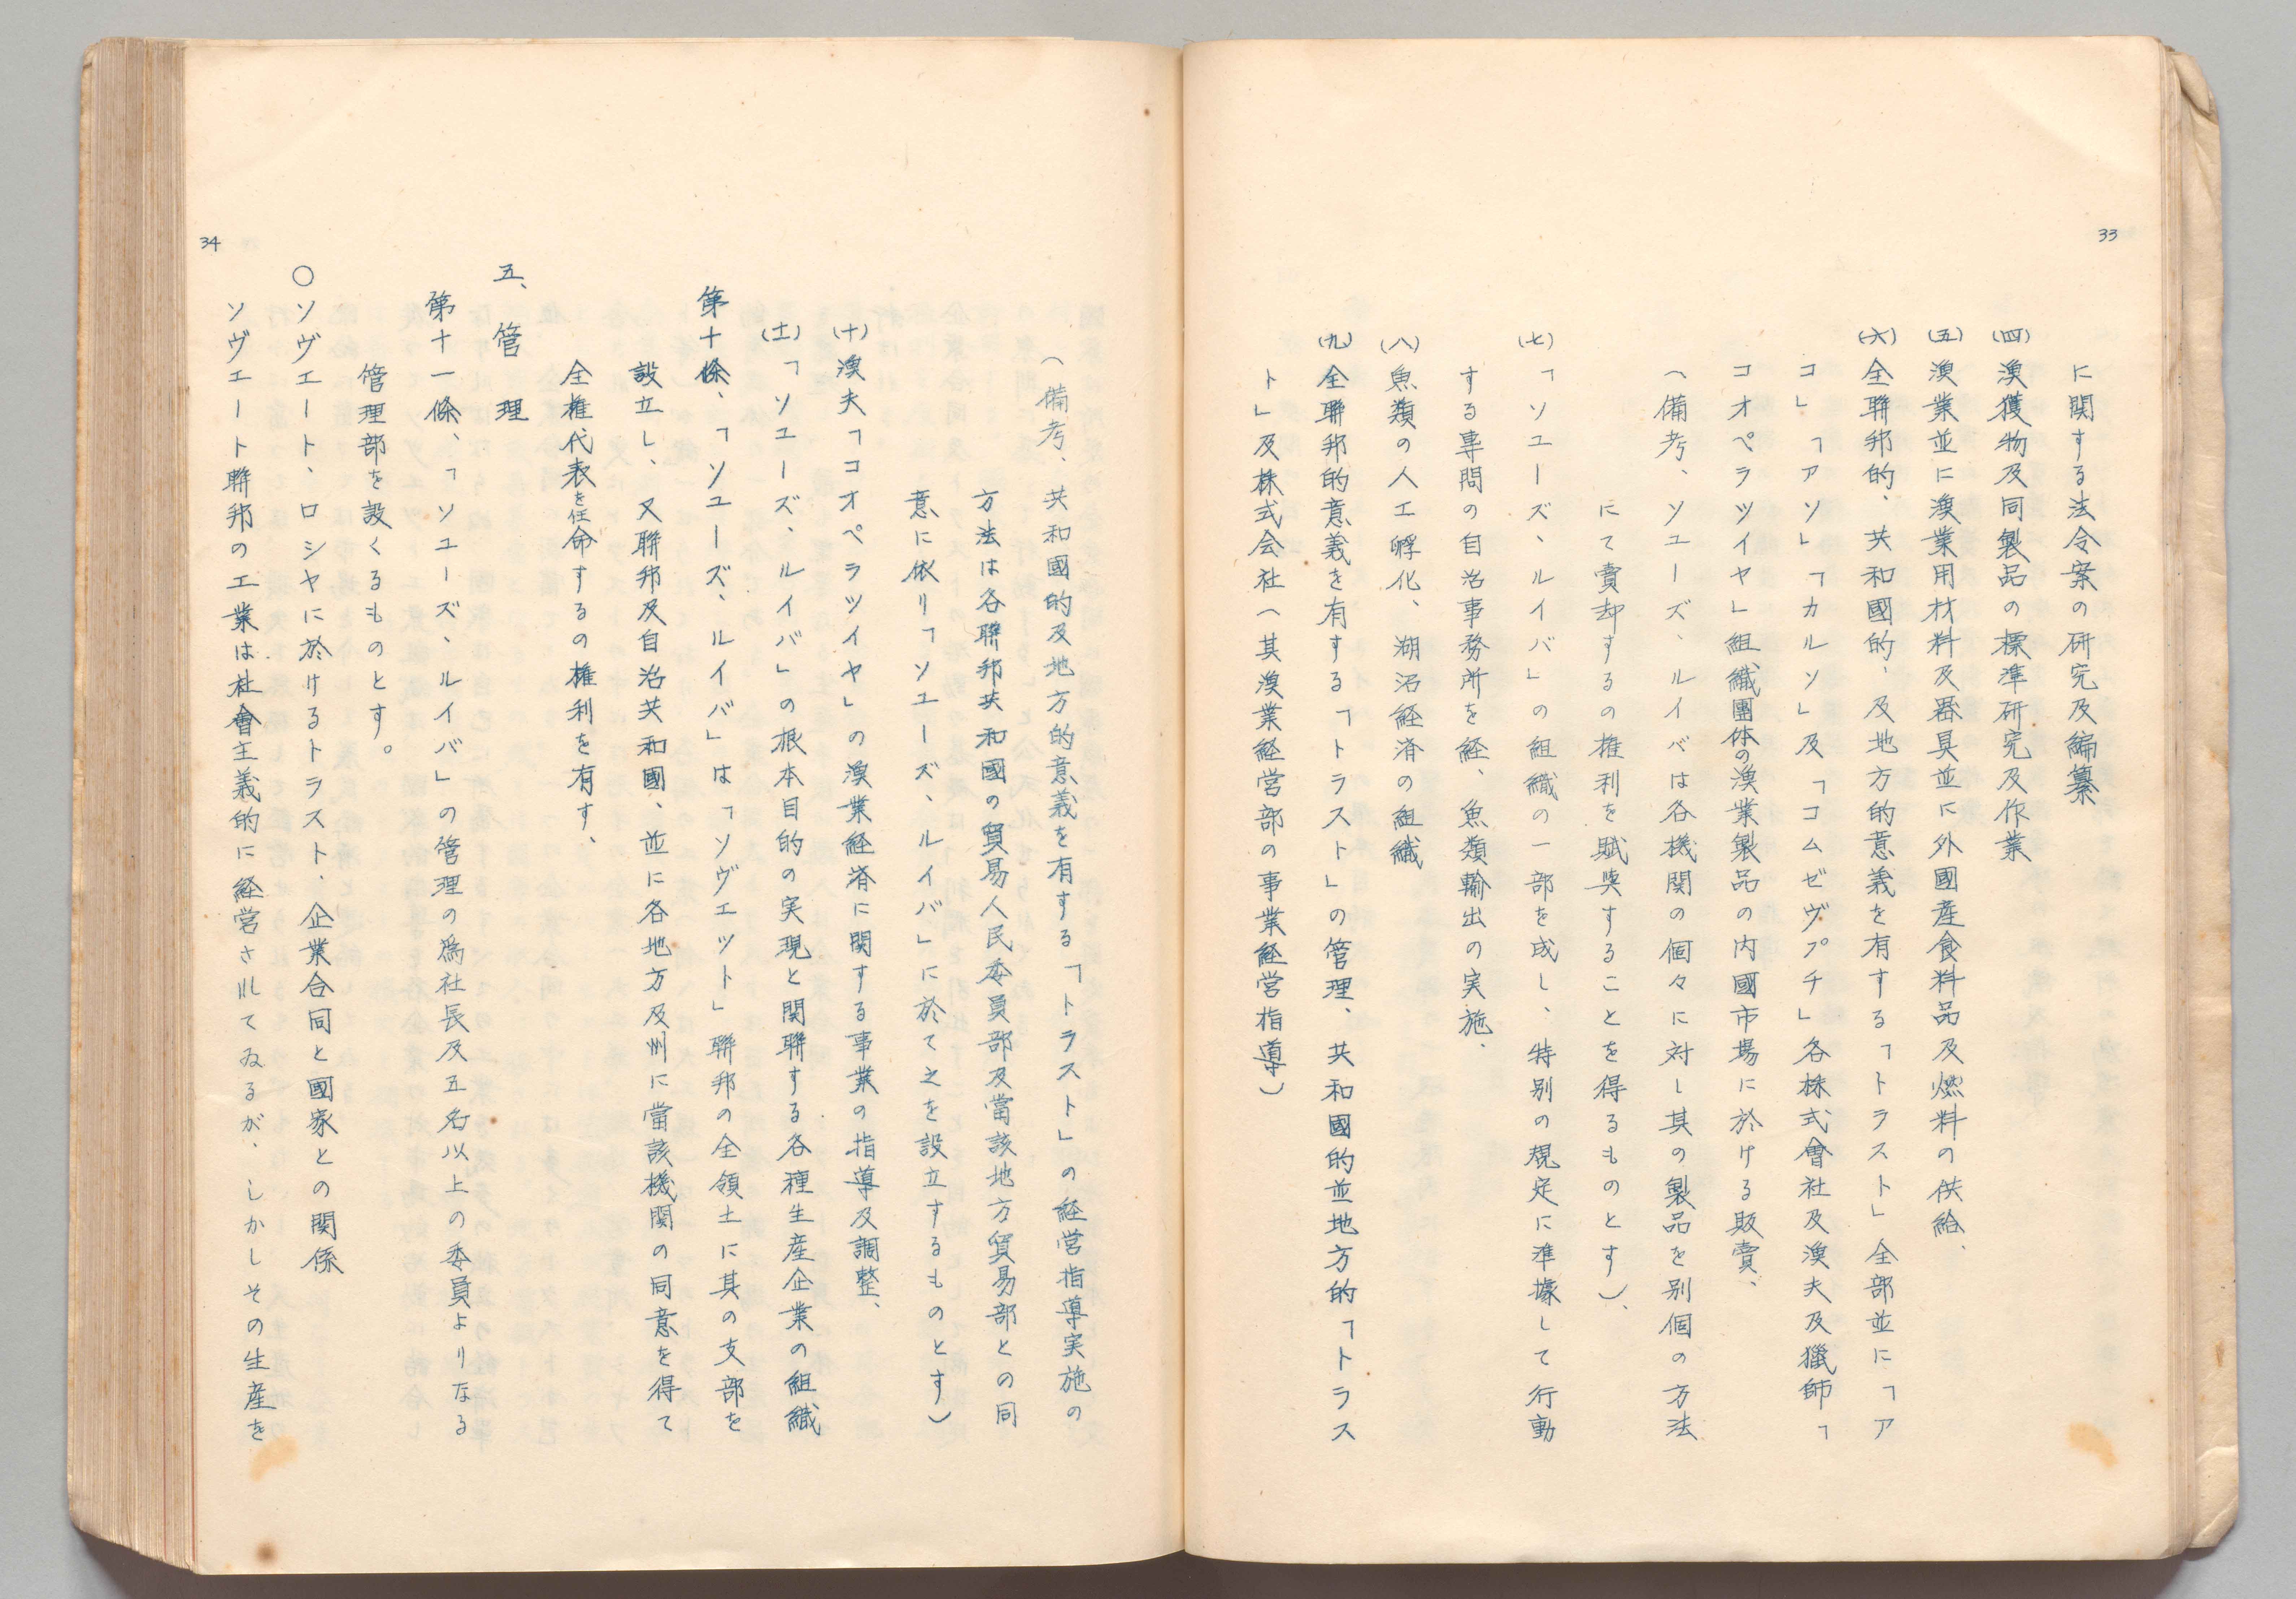 33
に関する法令案の研究及編纂
(四)漁獲物及同製品の標準研究及作業
(五)漁業並に漁業用材料及器具並に外國産食料品及燃料の供給、
(六)全聯邦的、共和國的、及地方的意義を有する「トラスト」全部並に「ア
コ」「アソ」「カルソ」及「コムゼヴプチ」各株式會社及漁夫及獵師「
コオペラツイヤ」組織團体の漁業製品の内國市場に於ける販賣、
(備考、ソユーズ、ルイバは各機関の個々に対し其の製品を別個の方法
にて賣却するの権利を賦與することを得るものとす)、
(七)「ソユーズ、ルイバ」の組織の一部を成し、特別の規定に準據して行動
する専問の自治事務所を経、魚類輸出の実施、
(八)魚類の人工孵化、湖沼経済の組織
(九)全聯邦的意義を有する「トラスト」の管理、共和國的並地方的「トラス
ト」及株式会社(其漁業経営部の事業経営指導)
(備考、共和國的及地方的意義を有する「トラスト」の経営指導実施の
方法は各聯邦共和國の貿易人民委員部及當該地方貿易部との同
意に依り「ソユーズ、ルイバ」に於て之を設立するものとす)
(十)漁夫「コオペラツイヤ」の漁業経済に関する事業の指導及調整、
(十一)「ソユーズ、ルイバ」の根本目的の実現と関聯する各種生産企業の組織
第十條、「ソユーズ、ルイバ」は「ソヴエツト」聯邦の全領土に其の支部を
設立し、又聯邦及自治共和國、並に各地方及州に當該機関の同意を得て
全権代表を任命するの権利を有す、
五、管理
第十一條、「ソユーズ、ルイバ」の管理の爲社長及五名以上の委員よりなる
管理部を設くるものとす。
○ソヴエート、ロシヤに於けるトラスト、企業合同と國家との関係
ソヴエート聯邦の工業は社會主義的に経営されてゐるが、しかしその生産を
34